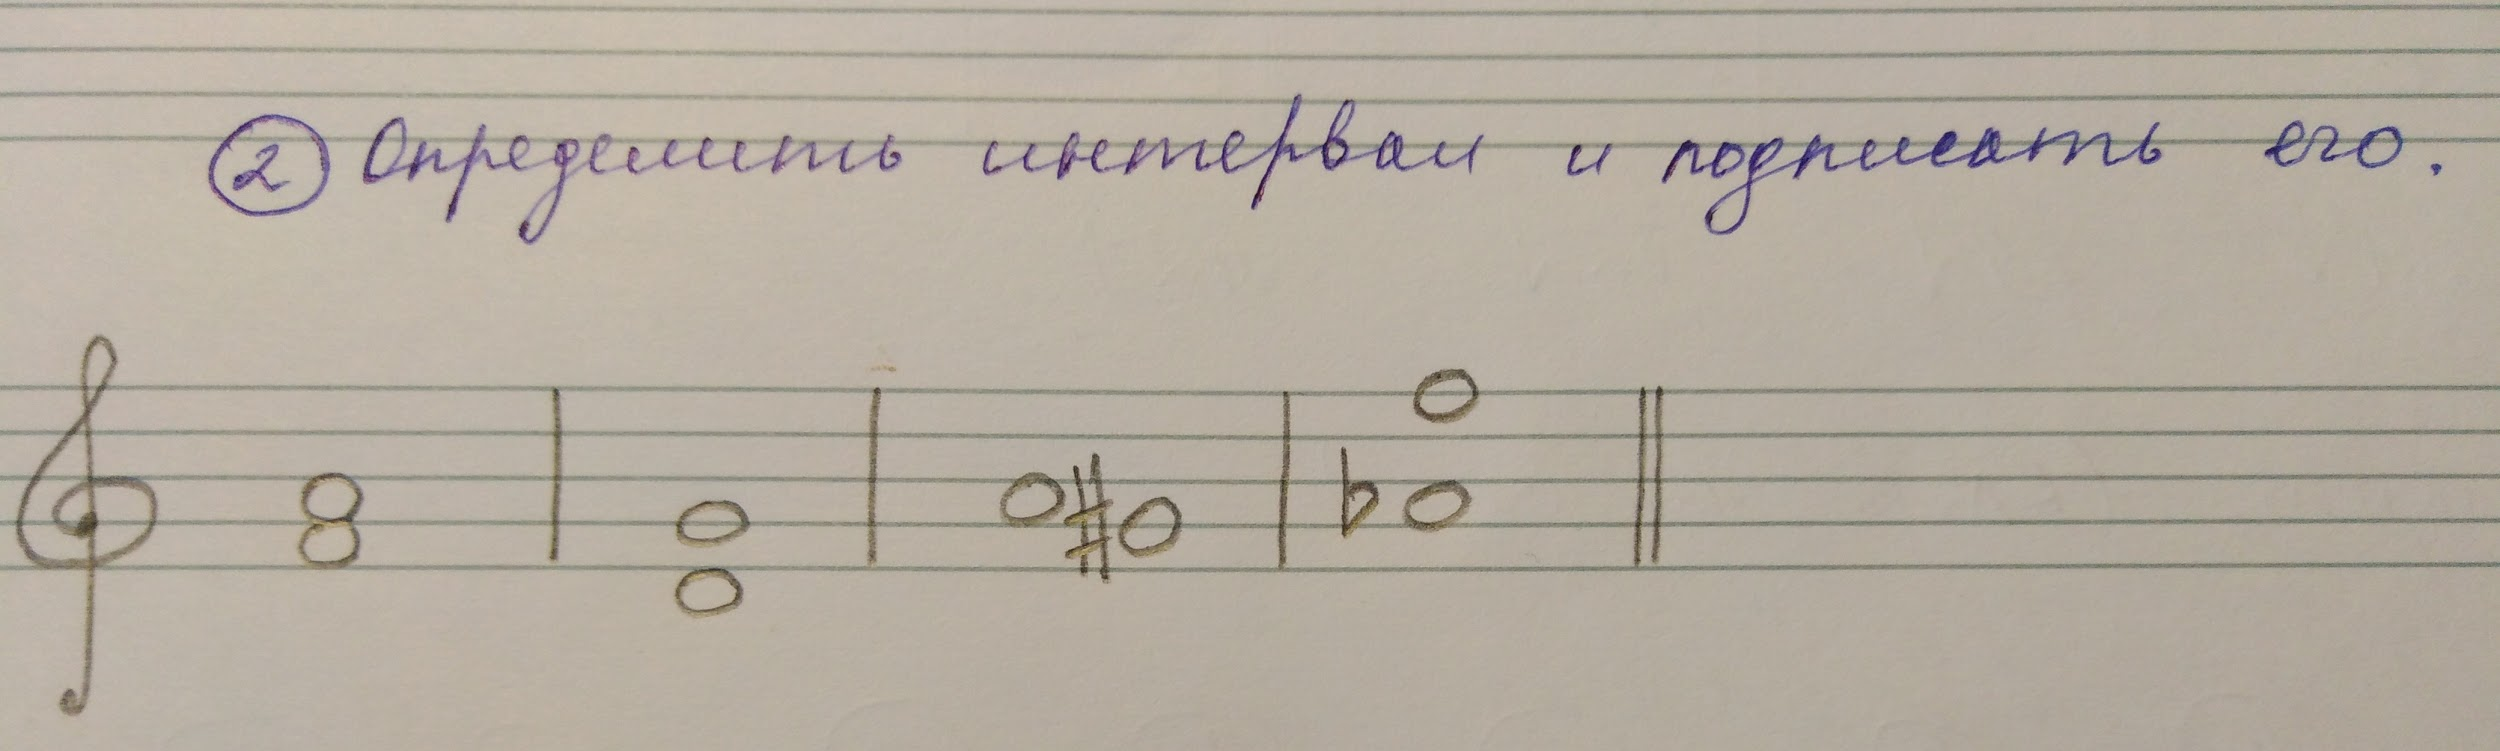 ② Определить интервал и подписать его.